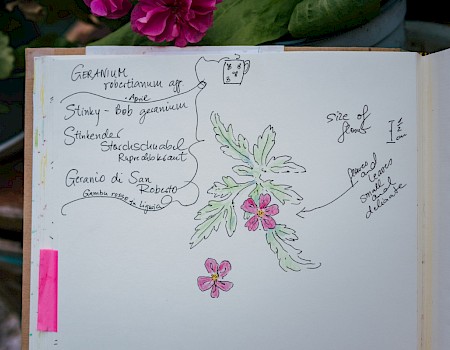 GERANIUM
robertianum agg.
Stinky-Bob geranium
Stinkender
Storchschnabel
Ruprechtskraut
Geranio di San
Roberto
Gamba rossa
size of
flower
1
cm
flower
and
leaves
small
and
delicate